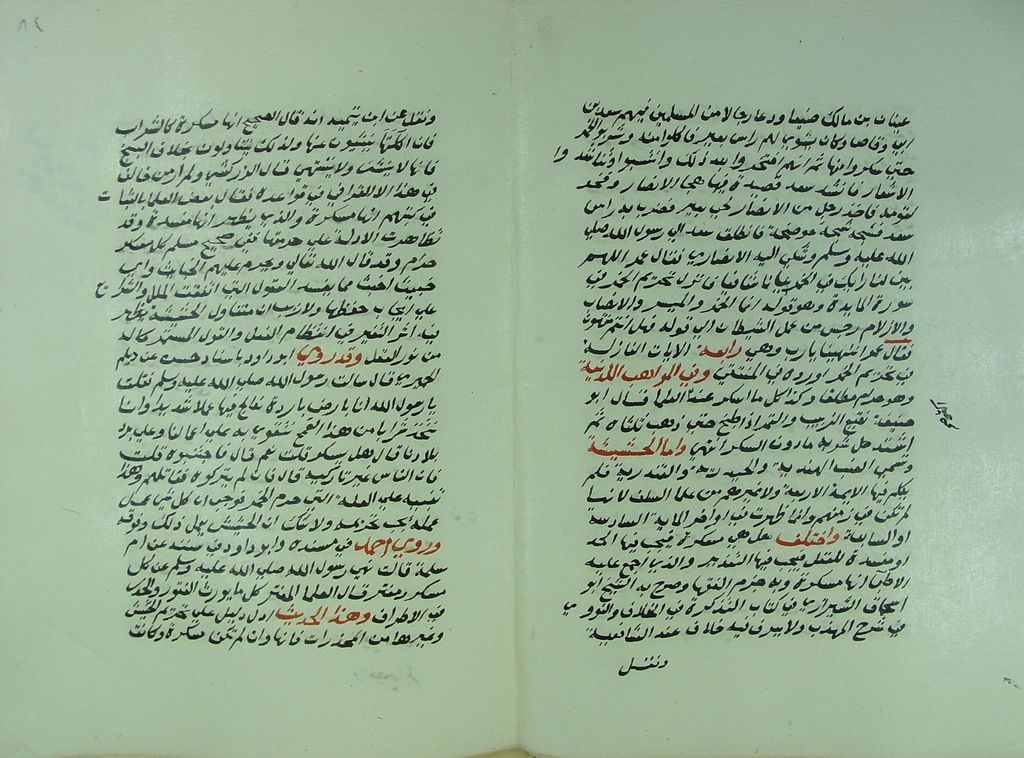 عتبان بن مالك صنيعا ودعا رجالا من المسلمين فيهم سعد بن
ابي وقاص وكان يشوي لهم راس بعير فاكلوا منه وشربوا الخمر
حتي سكروا منها ثم انهم افتخروا عند ذلك وانتسبوا وتناشدوا
الاشعار فانشد سعد قصيدة فيها هجا الانصار وفخر
لقومه فاخذ رجل من الانصار لحي بعير فضرب به راس
سعد فشجه شجة موضحة فانطلق سعد الي رسول الله صلي
الله عليه وسلم وشكي اليه الانصاري فقال عمر اللهم
بين لنا رايك في الخمر بيانا شافيا فانزل تحريم الخمر في
سورة المايدة وهو قوله انما الخمر والميسر والانصاب
والازلام رجس من عمل الشيطان الي قوله فهل انتم منتهون
فقال عمر انتهينا يا رب وهي رابعة الايات النازلة
في تحريم الخمر اورده في المنتقي وفي المواهب اللدنية
وهو حرام مطلقا وكذا كل ما اسكر عند العلما وقال ابو
حنيفة نقيع الزبيب والتمر اذا طبخ حتي ذهب ثلثاه ثم
اشتد حل شربه ما دون السكر انتهي واما الحشيشة
وتسمي القنب الهندية والحيدرية والقلندرية فلم
يتكلم فيها الايمة الاربعة ولا غيرهم من علما السلف لانها
لم تكن في زمنهم وانما ظهرت في اواخر الماية السادسة
او السابعة واختلف هل هي مسكرة فيجب فيها الحد
او مفسدة للعقل فيجب فيها التعذير والذي اجمع عليه
الاطبا انها مسكرة وبه جزم الفقها وصرح به الشيخ ابو
اسحاق الشيرازي في كتاب التذكرة في الخلاف والنووي
في شرح المهذب ولا يعرف فيه خلاف عند الشافعية
ونقل
ونقل عن ابن تيمية انه قال الصحيح انها مسكرة كالشراب
فان اكلتها ينتشون عنها ولذلك يتناولون بخلاف البنج
فانها لا ينشي ولا يشتهي قال الزركشي ولم ار من خالف
في هذا الا القرافي في قواعده فقال نص العلما بالنبات
في كتبهم انها مسكرة والذي يظهر انها مفسدة وقد
تظاهرت الادلة علي حرمتها ففي صحيح مسلم كل مسكر
حرام وقد قال الله تعالي ويحرم عليهم الخبايث واي
خبيث اخبث مما يفسد العقول التي اتفقت الملل والشرايع
علي ايجاب حفظها ولا ريب ان متناول الحشيشة يظهر
فيه اثر التغير في انتظام الفعل والقول المستمر كماله
من نور العقل وقد روي ابو داود باسناد حسن عن ديلم
الحميري قال سالت رسول الله صلي الله عليه وسلم فقلت
يا رسول الله انا بارض باردة نعالج فيها عملا شديدا وانا
نتخذ شرابا من هذا القمح نتقوي به علي اعمالنا وعلي برد
بلادنا قال فهل يسكر قلت نعم قال فاجتنبوه قلت
فان الناس غير تاركيه قال فان لم يتركوه فقاتلهم وهذا
تنبيه علي العلة التي حرم الخمر فوجب ان كل شي عمل
عمله يجب تحريمه ولا شك ان الحشيش يعمل ذلك وفوقه
وروي احمد في مسنده وابو داود في سننه عن ام
سلمة قالت نهي رسول الله صلي الله عليه وسلم عن كل
مسكر ومفتر قال العلما المفتر كل ما يورث الفتور والخدر
في الاطراف وهذا الحديث ادل دليل علي تحريم الحشيش
وغيرها من المخدرات فانها وان لم تكن مسكرة وكانت